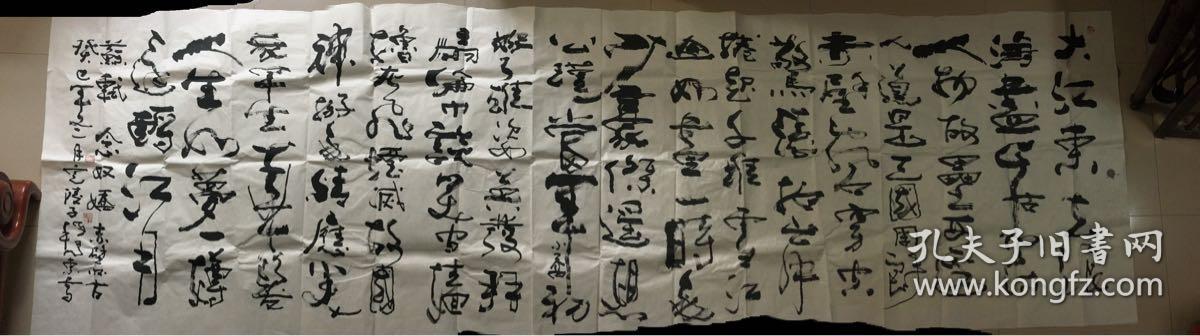 大江東去浪
淘盡千古
人物故壘西邊
人道是三國周郎
赤壁亂石穿空
驚濤拍岸
捲起千堆雪江
山如畫一時多
少豪傑遙想
公瑾當年小喬初
嫁了雄姿英發羽
扇綸巾談笑間檣
櫓灰飛煙滅故國
神游多情應笑
我早生華髮
人生如夢一樽
還酹江月
蘇軾 念奴嬌 赤壁懷古
癸巳年之二月
孔夫子旧書网
www.kongfz.com